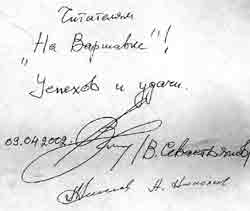 Читателям
"На Варшавке"!
Успехов и удачи.
09.04.2002
/В. Севастьянов
Н. Николаев